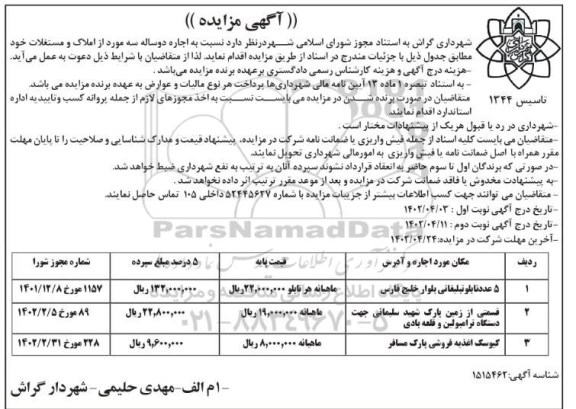 (( آگهی مزایده ))
شهرداری گراش به استناد مجوز شورای اسلامی شهر درنظر دارد نسبت به اجاره دوساله سه مورد از املاک و مستغلات خود
مطابق جدول ذیل با جزئیات مندرج در اسناد از طریق مزایده اقدام نماید. لذا از متقاضیان با شرایط ذیل دعوت به عمل می‌آید.
-هزینه درج آگهی و هزینه کارشناس رسمی دادگستری برعهده برنده مزایده می‌باشد .
- به استناد تبصره ۱ ماده ۱۳ آیین نامه مالی شهرداری‌ها پرداخت هر نوع مالیات و عوارض به عهده برنده مزایده می باشد.
متقاضیان در صورت برنده شدن در مزایده می بایست نسبت به اخذ مجوزهای لازم از جمله پروانه کسب و تاییدیه اداره
استاندارد اقدام نمایند.
تاسیس ۱۳۴۴
-شهرداری در رد یا قبول هریک از پیشنهادات مختار است .
-متقاضیان می بایست کلیه اسناد از جمله فیش واریزی یا ضمانت نامه شرکت در مزایده، پیشنهاد قیمت و مدارک شناسایی و صلاحیت را تا پایان مهلت
مقرر همراه با اصل ضمانت نامه یا فیش واریزی به امورمالی شهرداری تحویل نمایند.
-در صورتی که برندگان اول تا سوم حاضر به انعقاد قرارداد نشوند سپرده آنان به ترتیب به نفع شهرداری ضبط خواهد شد.
-به پیشنهادت مخدوش یا فاقد ضمانت شرکت در مزایده و بعد از موعد مقرر ترتیب اثر داده نخواهد شد .
- متقاضیان می توانند جهت کسب اطلاعات بیشتر از جزییات مزایده با شماره ۵۲۴۴۵۶۲۷ داخلی ۱۰۵ تماس حاصل نمایند.
-تاریخ درج آگهی نوبت اول : ۱۴۰۲/۰۴/۰۳
-تاریخ درج آگهی نوبت دوم : ۱۴۰۲/۰۴/۱۱
-آخرین مهلت شرکت در مزایده:۱۴۰۲/۰۴/۲۴
ParsNamadData
ردیف مکان مورد اجاره و آدرس قیمت پایه ۵ درصد مبلغ سپرده شماره مجوز شورا
۱ ۵ عددتابلوتبلیغاتی بلوار خلیج فارس ماهیانه هر تابلو ۲۲,۰۰۰,۰۰۰ریال ۱۳۲,۰۰۰,۰۰۰ریال ۱۱۵۷ مورخ ۱۴۰۱/۱۲/۸
۲ قسمتی از زمین پارک شهید سلیمانی جهت دستگاه ترامپولین و قلعه بادی ماهیانه ۱۹,۰۰۰,۰۰۰ ریال ۲۲,۸۰۰,۰۰۰ ریال ۸۹ مورخ ۱۴۰۲/۲/۵
۳ کیوسک اغذیه فروشی پارک مسافر ماهیانه ۸,۰۰۰,۰۰۰ ریال ۹,۶۰۰,۰۰۰ ریال ۲۲۸ مورخ ۱۴۰۲/۲/۳۱
۰۲۱-۸۸۳۴۹۶۷۰-۵
شناسه آگهی:۱۵۱۵۴۶۲
-۱م الف-مهدی حلیمی- شهردار گراش